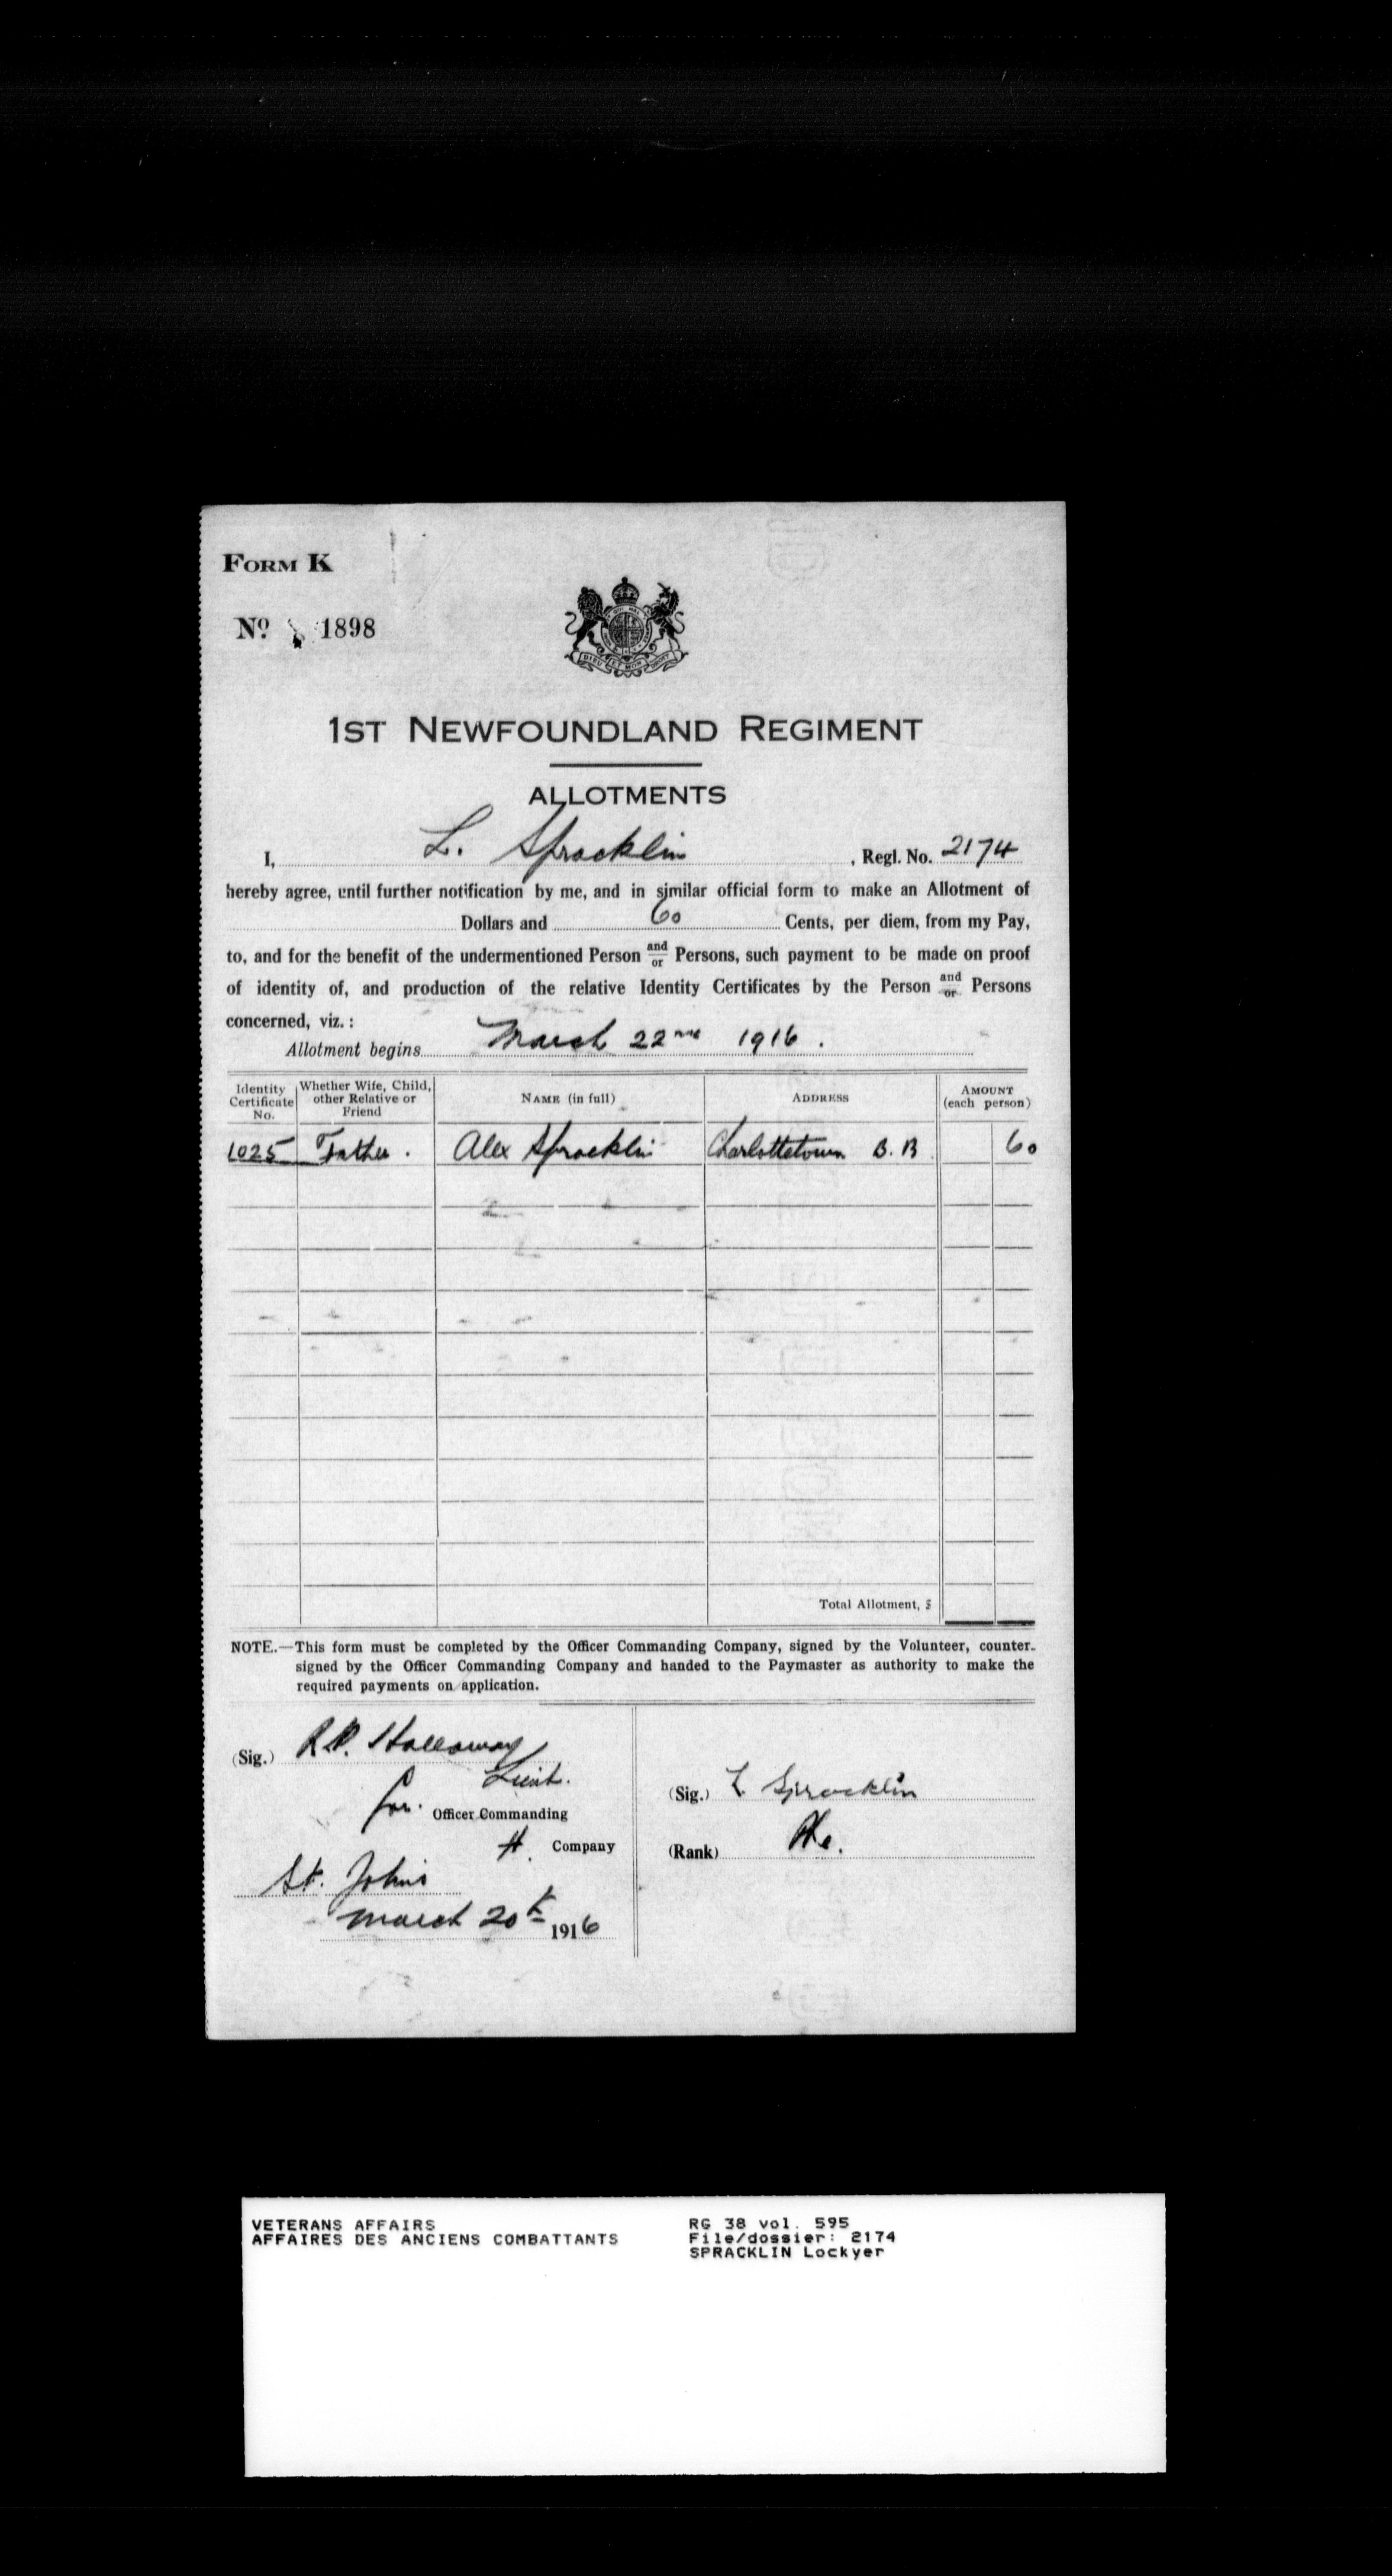 FORM K
No. 1898
DIEU ET MON DROIT
1ST NEWFOUNDLAND REGIMENT
ALLOTMENTS
I, L. Spracklin, Regl. No. 2174
hereby agree, until further notification by me, and in similar official form to make an Allotment of
Dollars and 60 Cents, per diem, from my Pay,
to, and for the benefit of the undermentioned Person and/or Persons, such payment to be made on proof
of identity of, and production of the relative Identity Certificates by the Person and/or Persons
concerned, viz. :
Allotment begins March 22nd 1916.
Identity Certificate No. Whether Wife, Child, other Relative or Friend NAME (in full) ADDRESS AMOUNT (each person)
1025 Father. Alex Spracklin Charlottetown B.B 60
Total Allotment, $
NOTE.—This form must be completed by the Officer Commanding Company, signed by the Volunteer, counter-
signed by the Officer Commanding Company and handed to the Paymaster as authority to make the
required payments on application.
(Sig.) R.P. Holloway
Lieut.
for. Officer Commanding
H. Company
St. Johns
March 20th 1916
(Sig.) L Spracklin
(Rank) Pte.
VETERANS AFFAIRS
AFFAIRES DES ANCIENS COMBATTANTS
RG 38 vol. 595
File/dossier: 2174
SPRACKLIN Lockyer